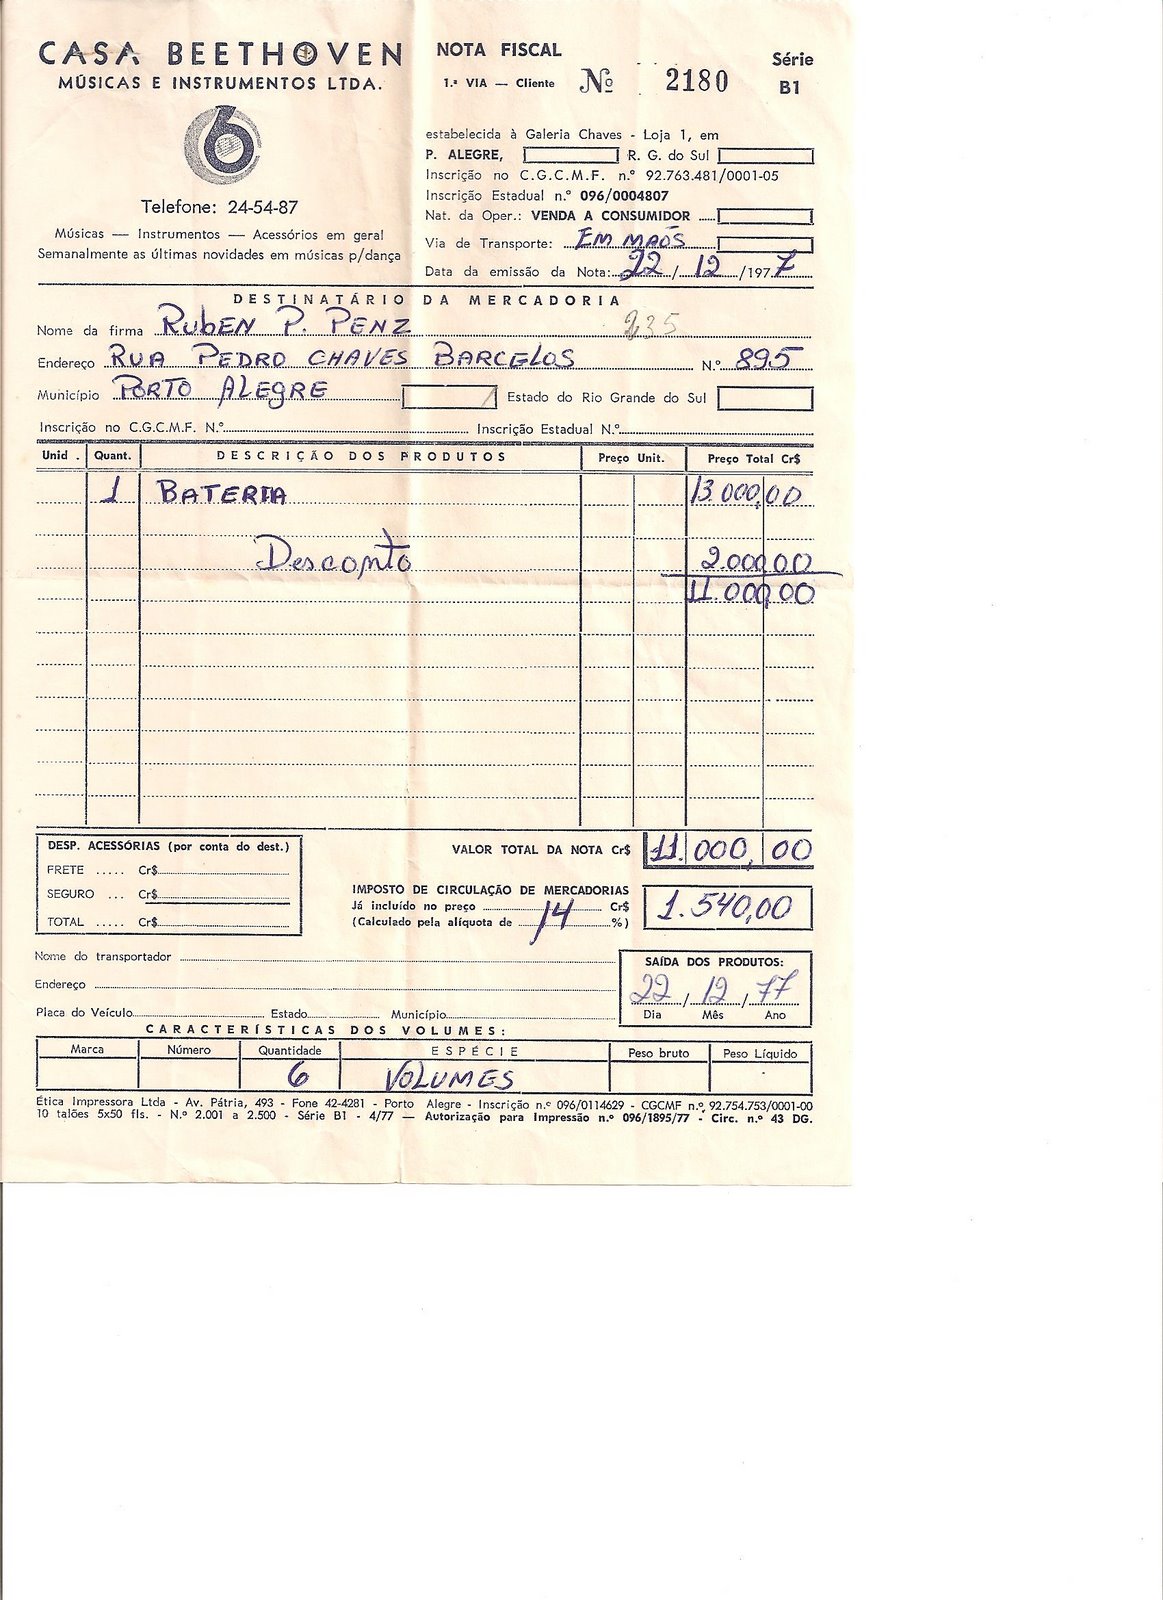 CASA BEETHOVEN
MÚSICAS E INSTRUMENTOS LTDA.
6
Telefone: 24-54-87
Músicas — Instrumentos — Acessórios em geral
Semanalmente as últimas novidades em músicas p/dança
NOTA FISCAL
1.ª VIA — Cliente Nº 2180
Série
B1
estabelecida à Galeria Chaves - Loja 1, em
P. ALEGRE, R. G. do Sul
Inscrição no C.G.C.M.F. n.º 92.763.481/0001-05
Inscrição Estadual n.º 096/0004807
Nat. da Oper.: VENDA A CONSUMIDOR
Via de Transporte: EM MAOS
Data da emissão da Nota: 22 / 12 / 1977
DESTINATÁRIO DA MERCADORIA
Nome da firma RUBEN P. PENZ 235
Endereço RUA PEDRO CHAVES BARCELOS N.º 895
Município PORTO ALEGRE Estado do Rio Grande do Sul
Inscrição no C.G.C.M.F. N.º Inscrição Estadual N.º
Unid . Quant. DESCRIÇÃO DOS PRODUTOS Preço Unit. Preço Total Cr$
1 BATERIA 13.000,00
Desconto 2.000,00
11.000,00
DESP. ACESSÓRIAS (por conta do dest.)
FRETE ..... Cr$
SEGURO ... Cr$
TOTAL ..... Cr$
VALOR TOTAL DA NOTA Cr$ 11.000,00
IMPOSTO DE CIRCULAÇÃO DE MERCADORIAS
Já incluído no preço Cr$ 1.540,00
(Calculado pela alíquota de 14 %)
Nome do transportador
Endereço
Placa do Veículo Estado Município
SAÍDA DOS PRODUTOS:
22 / 12 / 77
Dia Mês Ano
CARACTERÍSTICAS DOS VOLUMES:
Marca Número Quantidade ESPÉCIE Peso bruto Peso Líquido
6 VOLUMES
Ética Impressora Ltda - Av. Pátria, 493 - Fone 42-4281 - Porto Alegre - Inscrição n.º 096/0114629 - CGCMF n.º 92.754.753/0001-00
10 talões 5x50 fls. - N.º 2.001 a 2.500 - Série B1 - 4/77 — Autorização para Impressão n.º 096/1895/77 - Circ. n.º 43 DG.